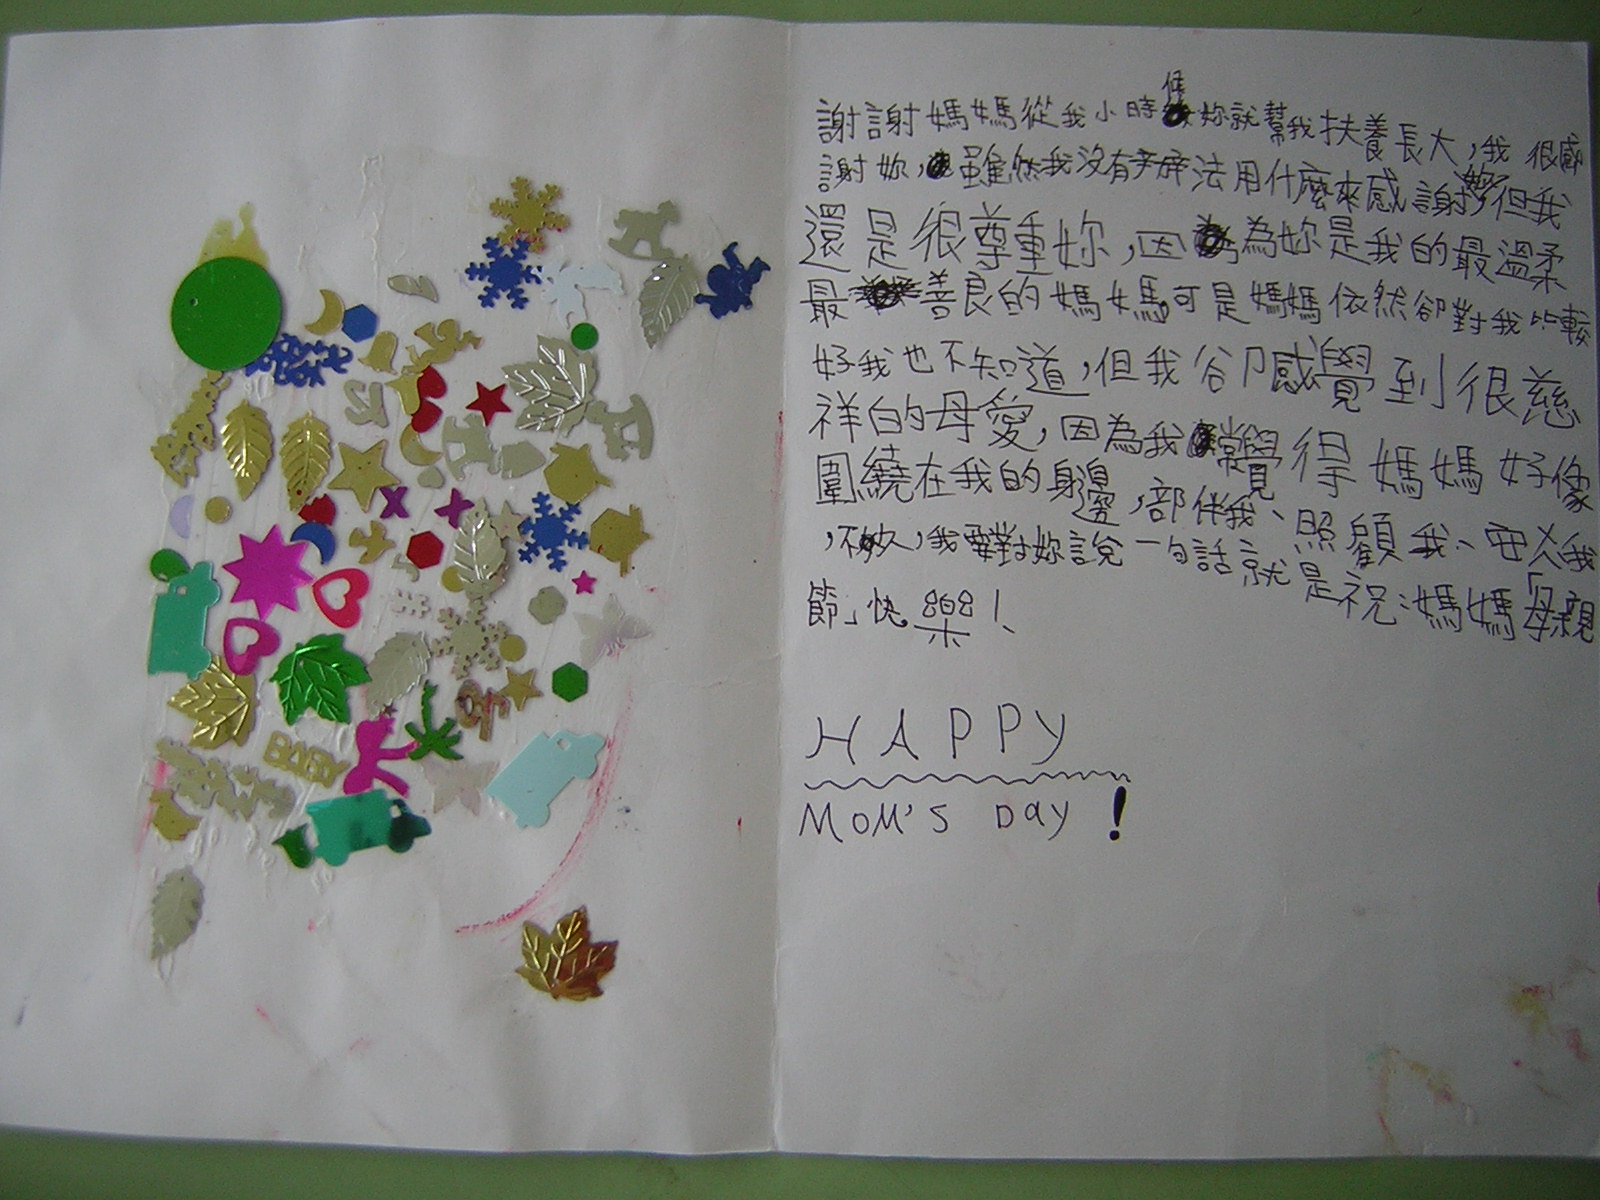 謝謝媽媽從我小時候妳就幫我扶養長大,我很感
謝妳,雖然我沒有辦法用什麼來感謝妳但我
還是很尊重妳,因為妳是我的最溫柔
最善良的媽媽,可是媽媽依然卻對我比較
好我也不知道,但我卻感覺到很慈
祥白的母愛,因為我常覺得媽媽好像
圍繞在我的身邊,部伴我、照顧我、我
,我要對妳說一句話就是祝:媽媽「母親
節」快樂!
HAPPY
MOM'S DAY!
BABY